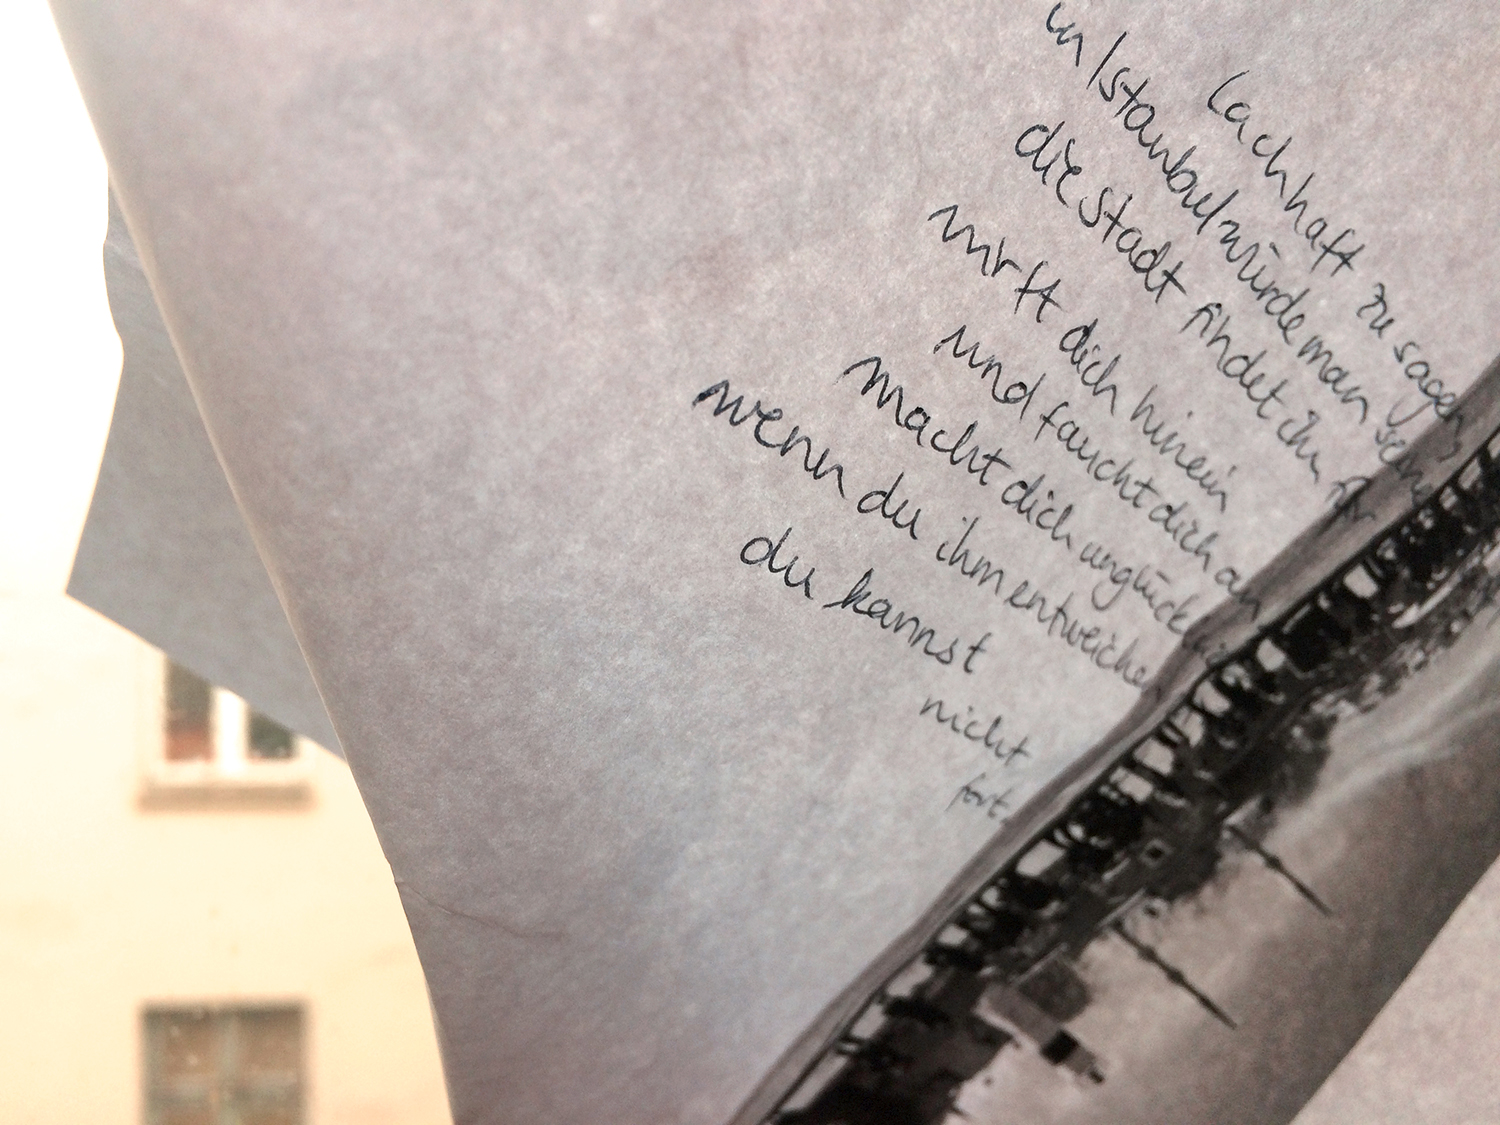 lachhaft zu sagen,
in Istanbul würde man
die stadt findet ihn
wirft dich hinein
und faucht dich an
macht dich unglücklich
wenn du ihm entweichen
du kannst
nicht
fort.